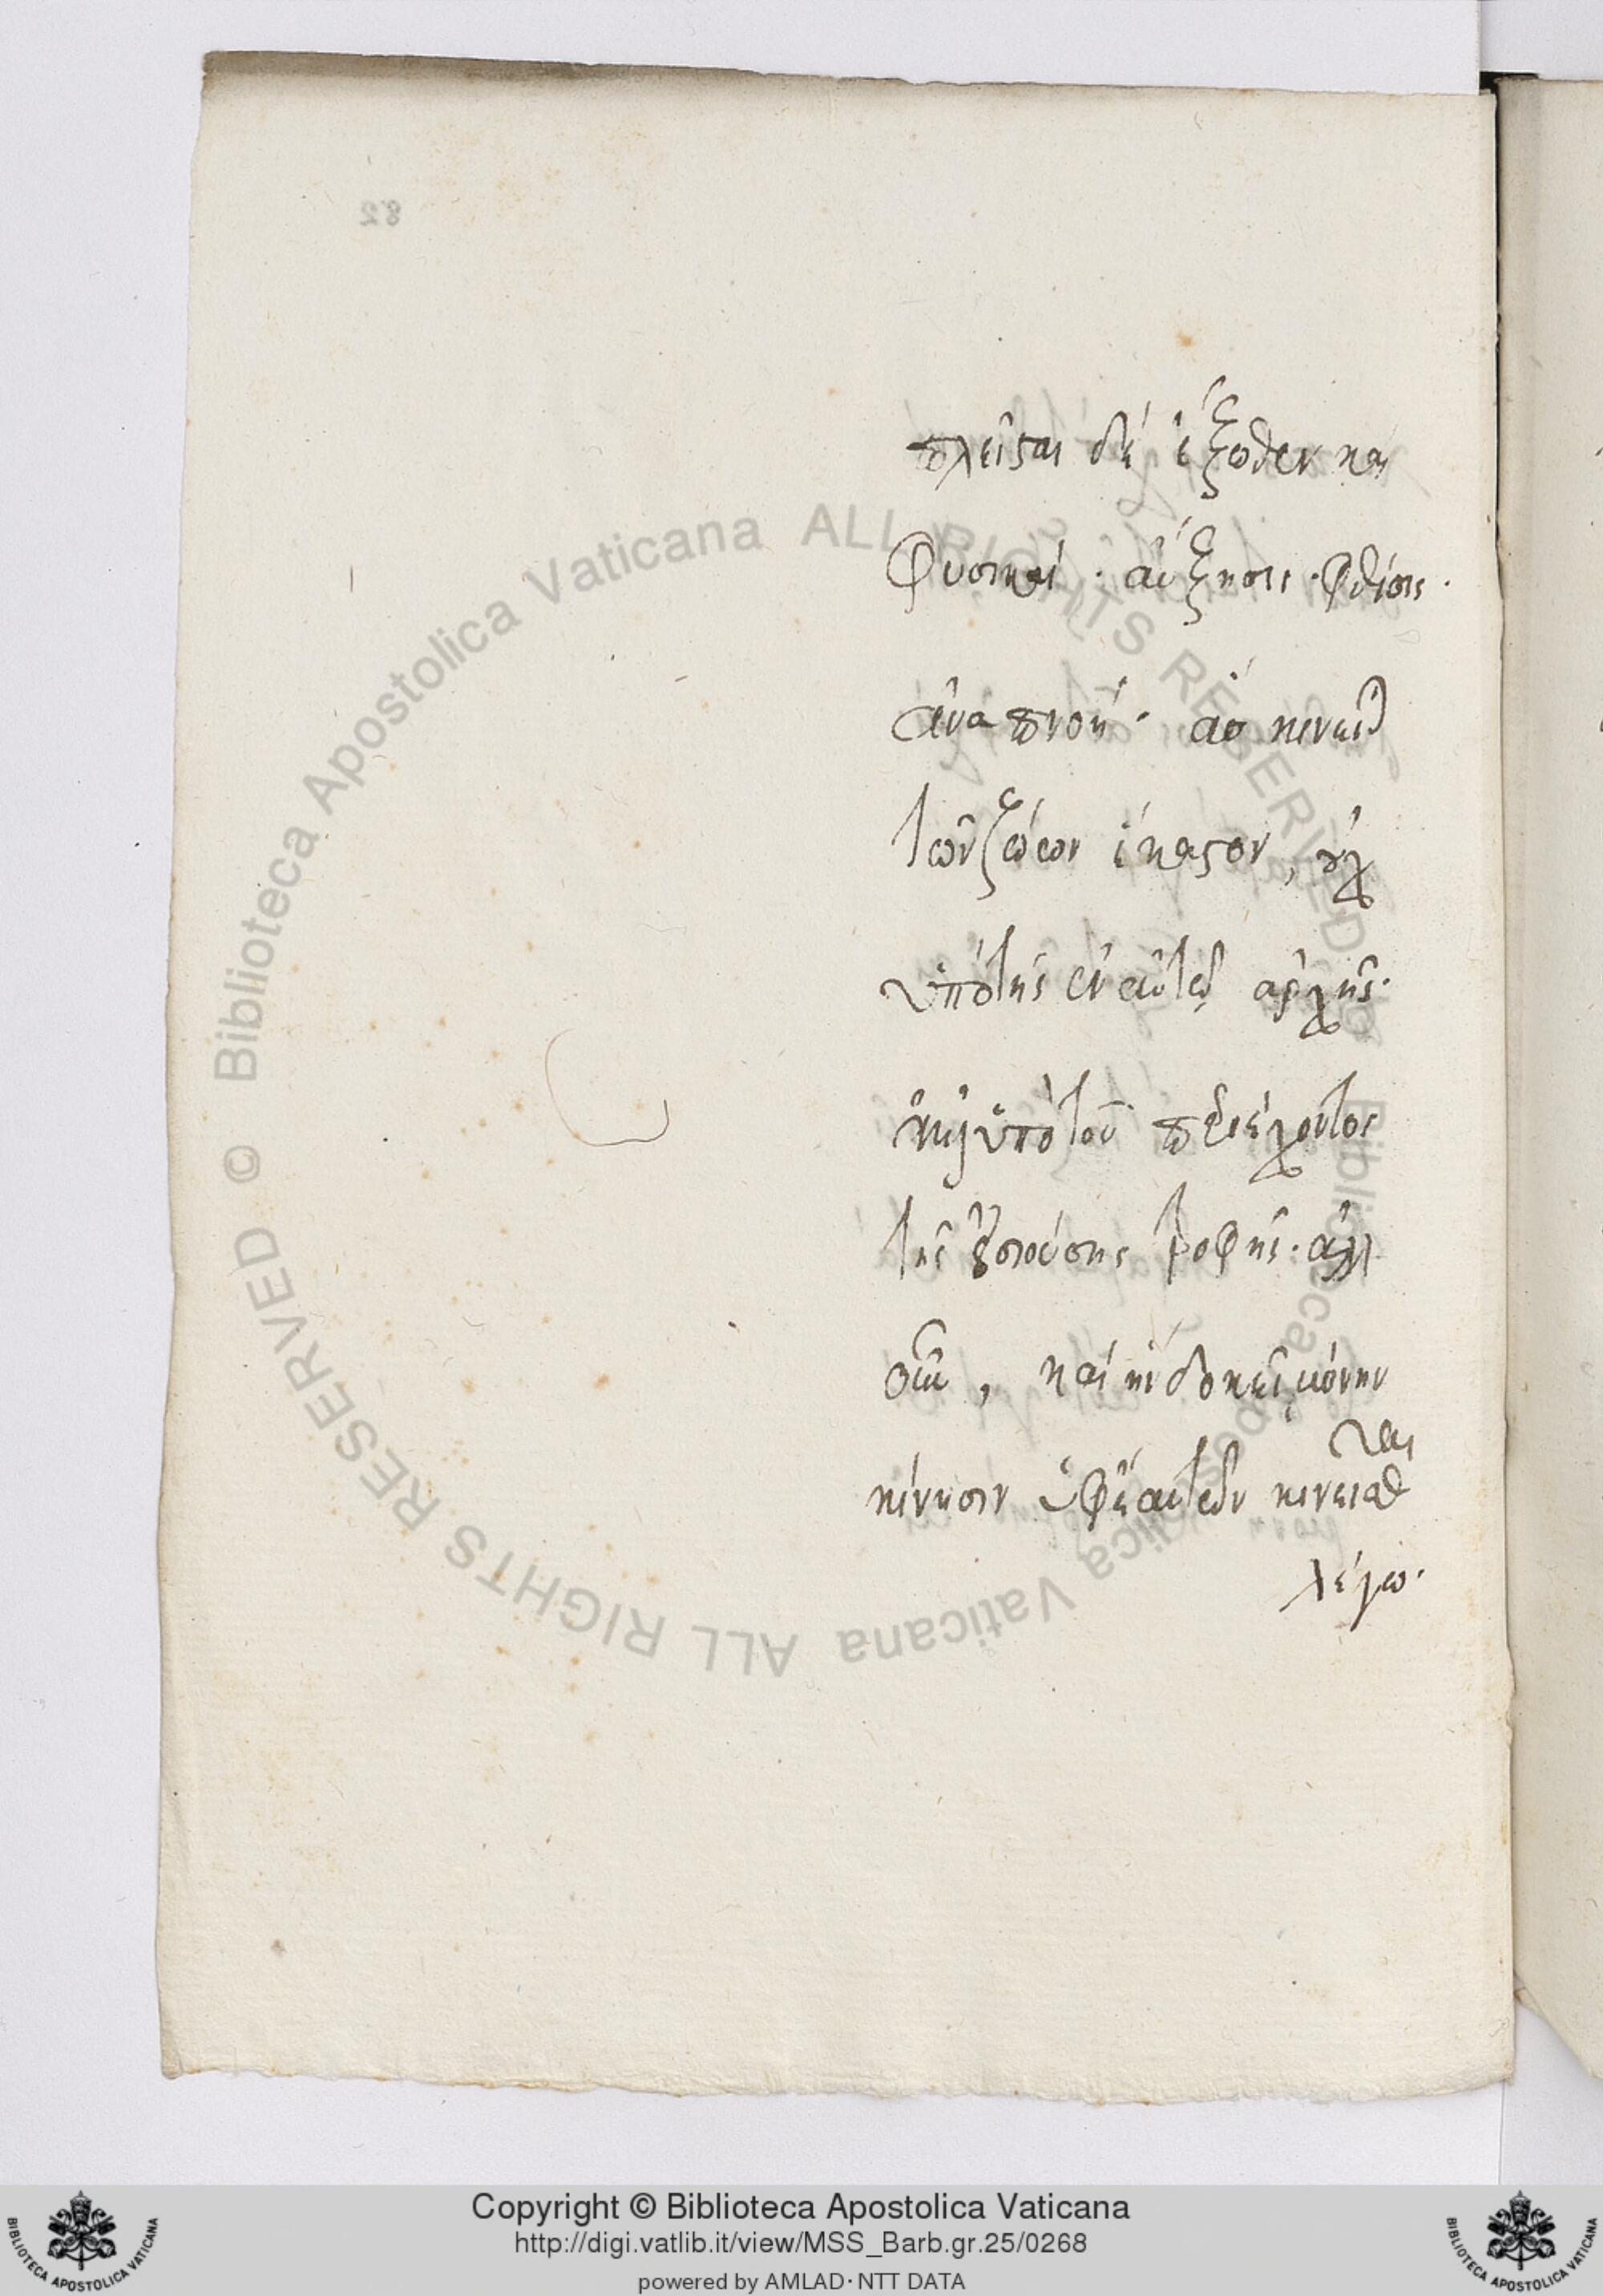 πλεῖσται δὲ ἔξωθεν καὶ
φυσικαί· αὔξησις· φθίσις·
ἀναπνοή· ἃς κινεῖται
τῶν ζώων ἕκαστον, οὐχ
ὑπὸ τῆς ἐν αὐτῷ ἀρχῆς·
ἀλλ' ὑπὸ τοῦ περιέχοντος
τῆς εἰσιούσης τροφῆς· ἀλλ'
οὖν, καὶ ἣν δοκεῖ μόνην
κίνησιν ὑφ' ἑαυτῶν κινεῖσθαι
λέγω·
82
Copyright © Biblioteca Apostolica Vaticana
http://digi.vatlib.it/view/MSS_Barb.gr.25/0268
powered by AMLAD·NTT DATA
© Biblioteca Apostolica Vaticana ALL RIGHTS RESERVED
© Biblioteca Apostolica Vaticana ALL RIGHTS RESERVED
BIBLIOTECA APOSTOLICA VATICANA
BIBLIOTECA APOSTOLICA VATICANA